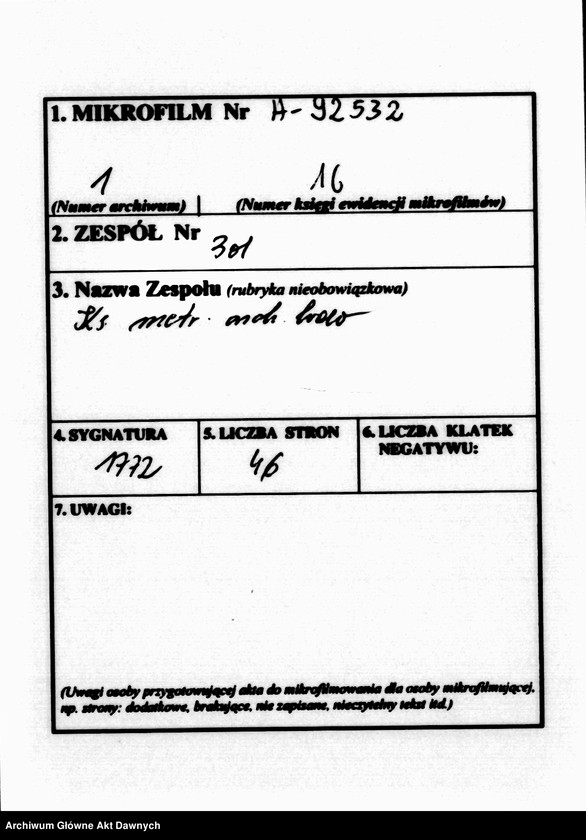 1. MIKROFILM Nr A-92532
1 16
(Numer archiwum) (Numer księgi ewidencji mikrofilmów)
2. ZESPÓŁ Nr 301
3. Nazwa Zespołu (rubryka nieobowiązkowa)
Ks. metr. arch.
4. SYGNATURA 5. LICZBA STRON 6. LICZBA KLATEK
NEGATYWU:
1772 46
7. UWAGI:
(Uwagi osoby przygotowującej akta do mikrofilmowania dla osoby mikrofilmującej,
np. strony: dodatkowe, brakujące, nie zapisane, nieczytelny tekst itd.)
Archiwum Główne Akt Dawnych